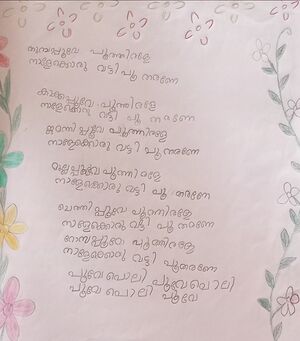 തുമ്പപ്പൂവേ പൂത്തിരളേ
നാളേക്കൊരു വട്ടി പൂ തരണേ
കാക്കപ്പൂവേ പൂത്തിരളേ
നാളേക്കൊരു വട്ടി പൂ തരണേ
പൂത്തിരളേ
നാളേക്കൊരു വട്ടി പൂ തരണേ
മുല്ലപ്പൂവേ പൂത്തിരളേ
നാളേക്കൊരു വട്ടി പൂ തരണേ
ചെത്തിപ്പൂവേ പൂത്തിരളേ
നാളേക്കൊരു വട്ടി പൂ തരണേ
പൂത്തിരളേ
നാളേക്കൊരു വട്ടി പൂതരണേ
പൂവേപൊലി പൂവേപൊലി
പൂവേ പൊലി പൂവേ